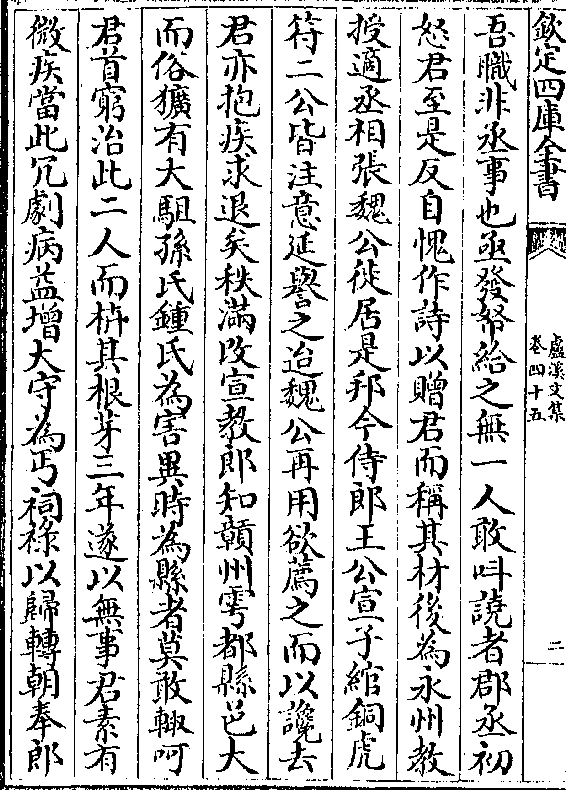 欽定四庫全書
盧溪文集
卷四十五
二
吾職非丞事也亟發帑給之無一人敢呌譊者郡丞初
怒君至是反自愧作詩以贈君而稱其材後為永州教
授適丞相張魏公徙居是邦今侍郎王公宣子綰銅虎
符二公皆注意延譽之迨魏公再用欲薦之而以讒去
君亦抱疾求退矣秩滿改宣教郎知贛州雩都縣邑大
而俗獷有大駔孫氏鍾氏為害異時為縣者莫敢輙呵
君首窮治此二人而枿其根芽三年遂以無事君素有
微疾當此冗劇病益增大守為丐祠祿以歸轉朝奉郎